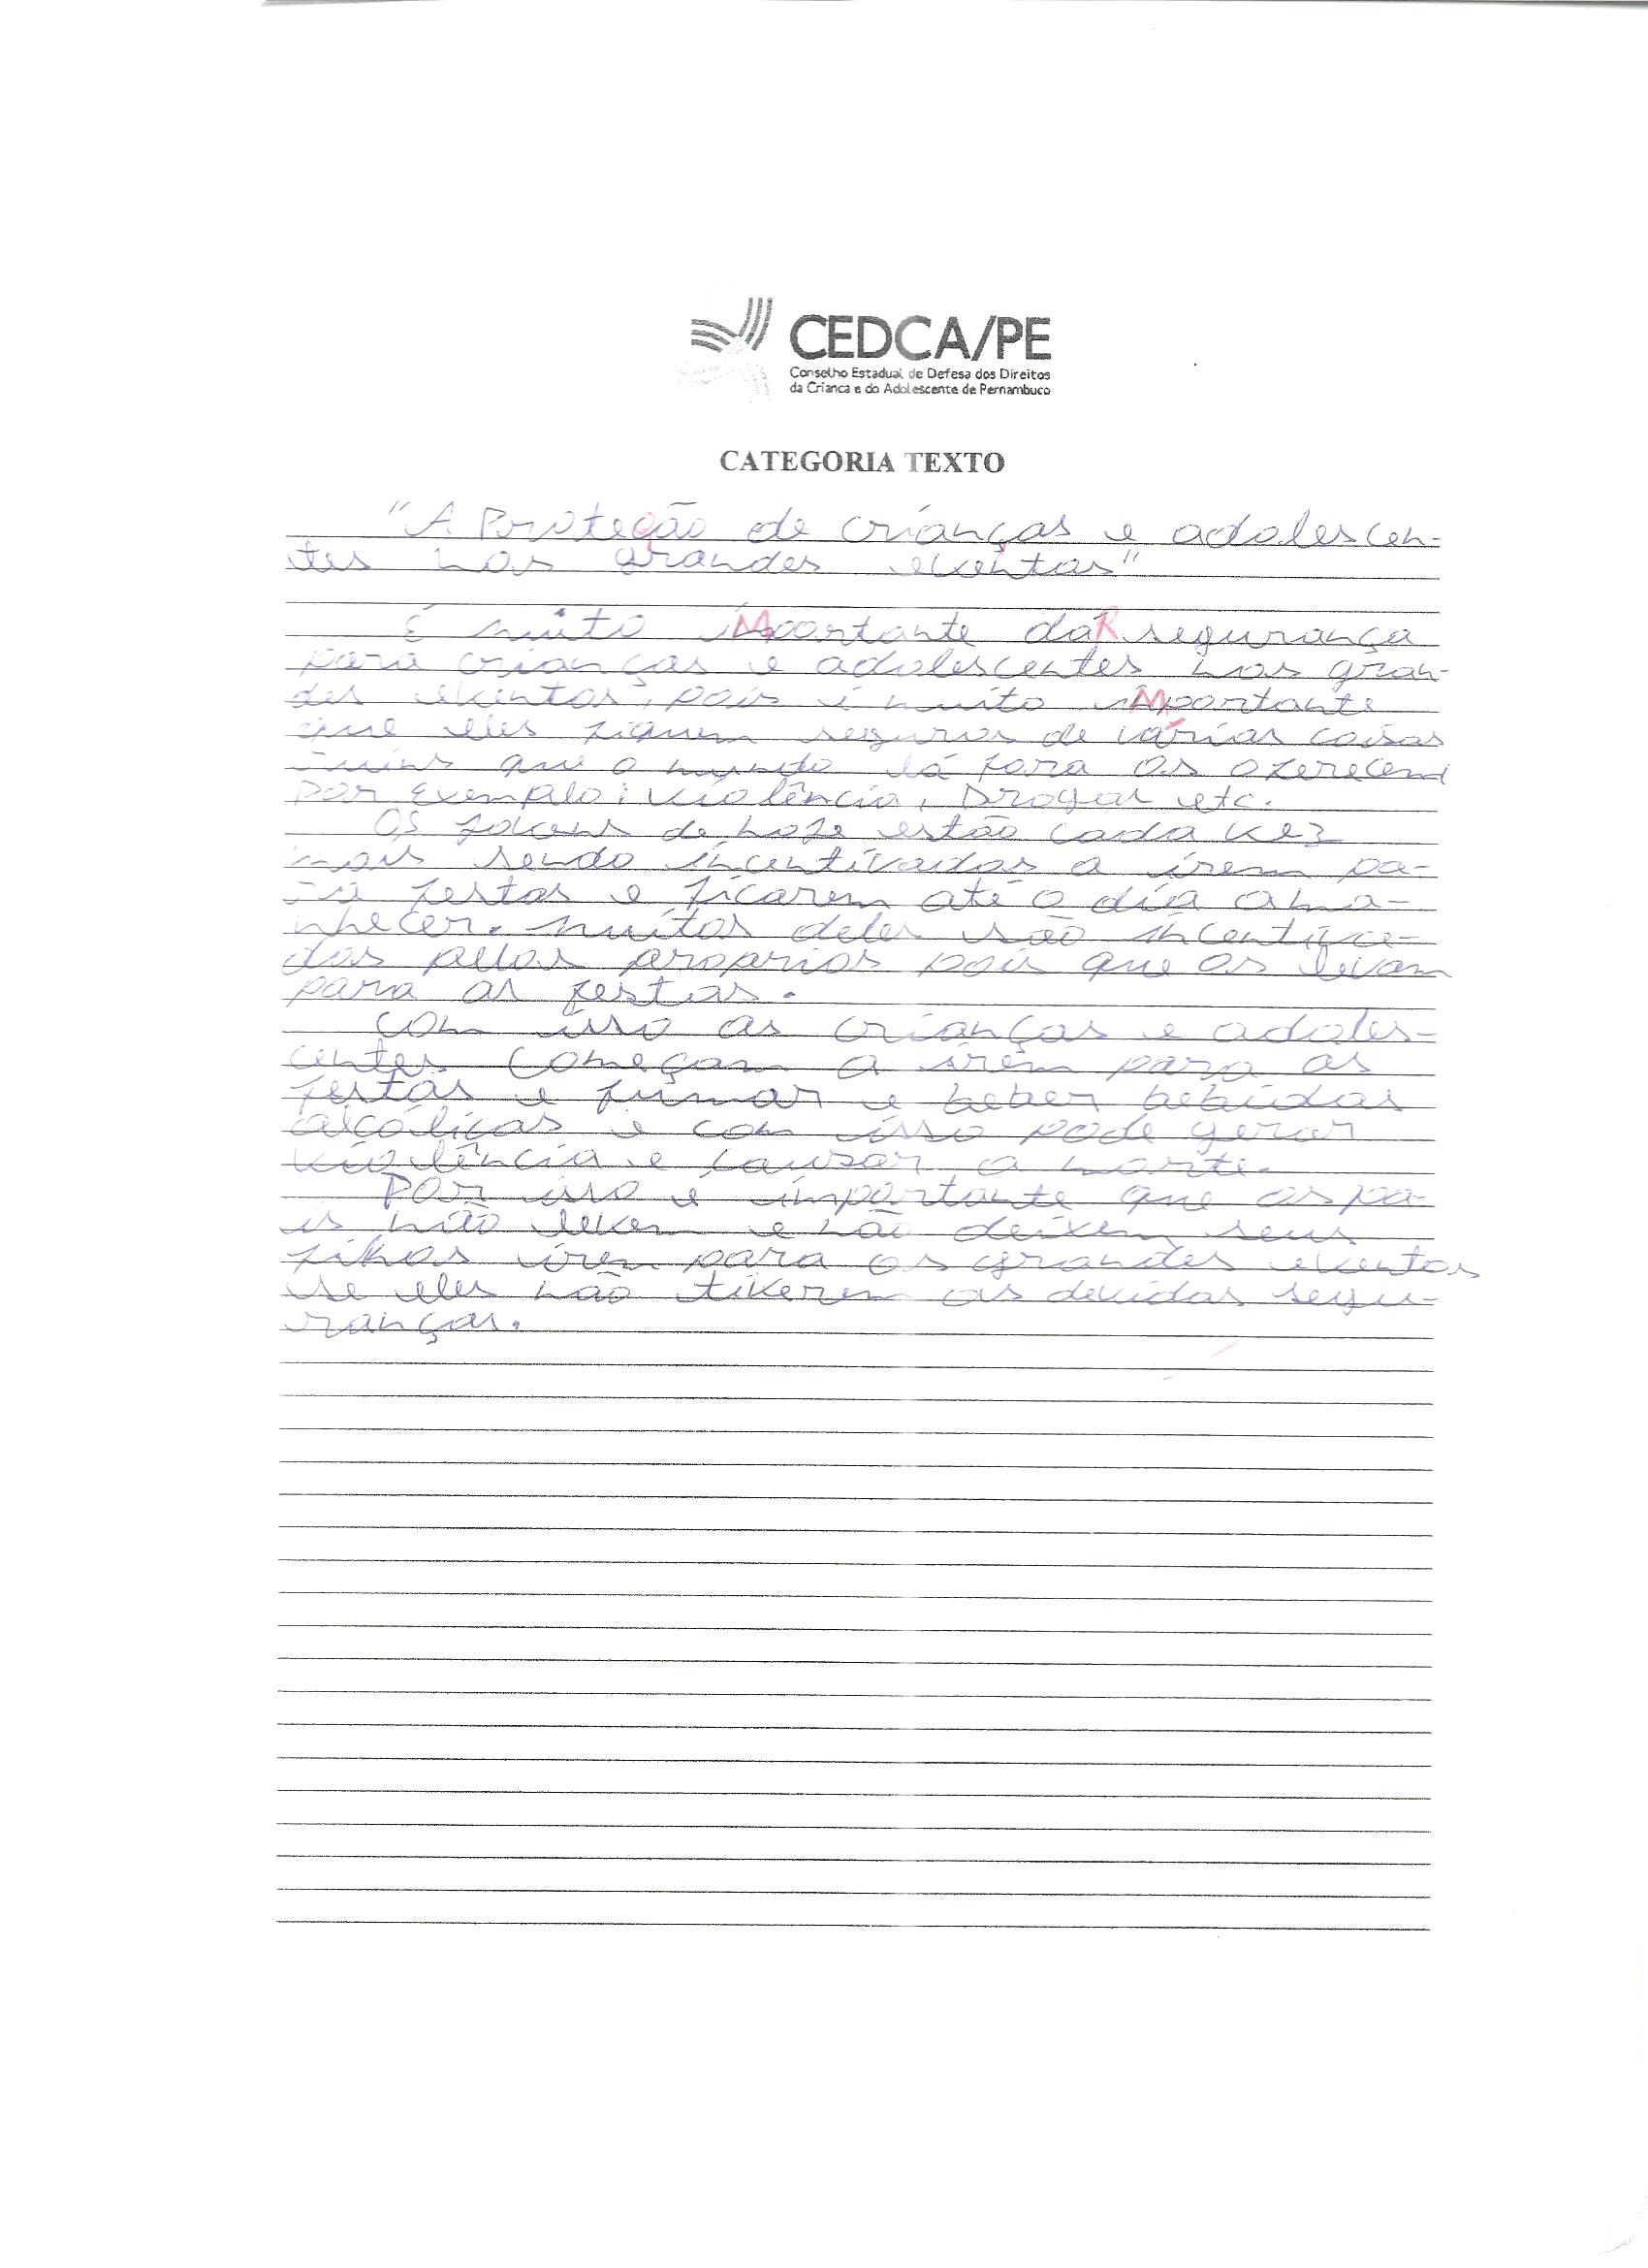 CEDCA/PE
Conselho Estadual de Defesa dos Direitos
da Criança e do Adolescente de Pernambuco
CATEGORIA TEXTO
"A Proteção de crianças e adolescen-
tes nos grandes eventos"
É muito iMportante daR segurança
para crianças e adolescentes nos gran-
des eventos, pois é muito iMportante
que eles fiquem seguros de várias coisas
ruins que o mundo lá fora os oferecem
por Exemplo: violência, Drogas etc.
Os jovens de hoje estão cada vez
mais sendo incentivados a irem pa-
ra festas e ficarem até o dia ama-
nhecer. muitos deles são incentiva-
dos pelos proprios pais que os levam
para as festas.
Com isso as crianças e adoles-
centes começam a irem para as
festas e fumar e beber bebidas
alcólicas e com isso pode gerar
violência e causar a morte.
Por isso é importante que os pa-
is não levem e não deixem seus
filhos irem para os grandes eventos
se eles não tiverem as devidas segu-
ranças.